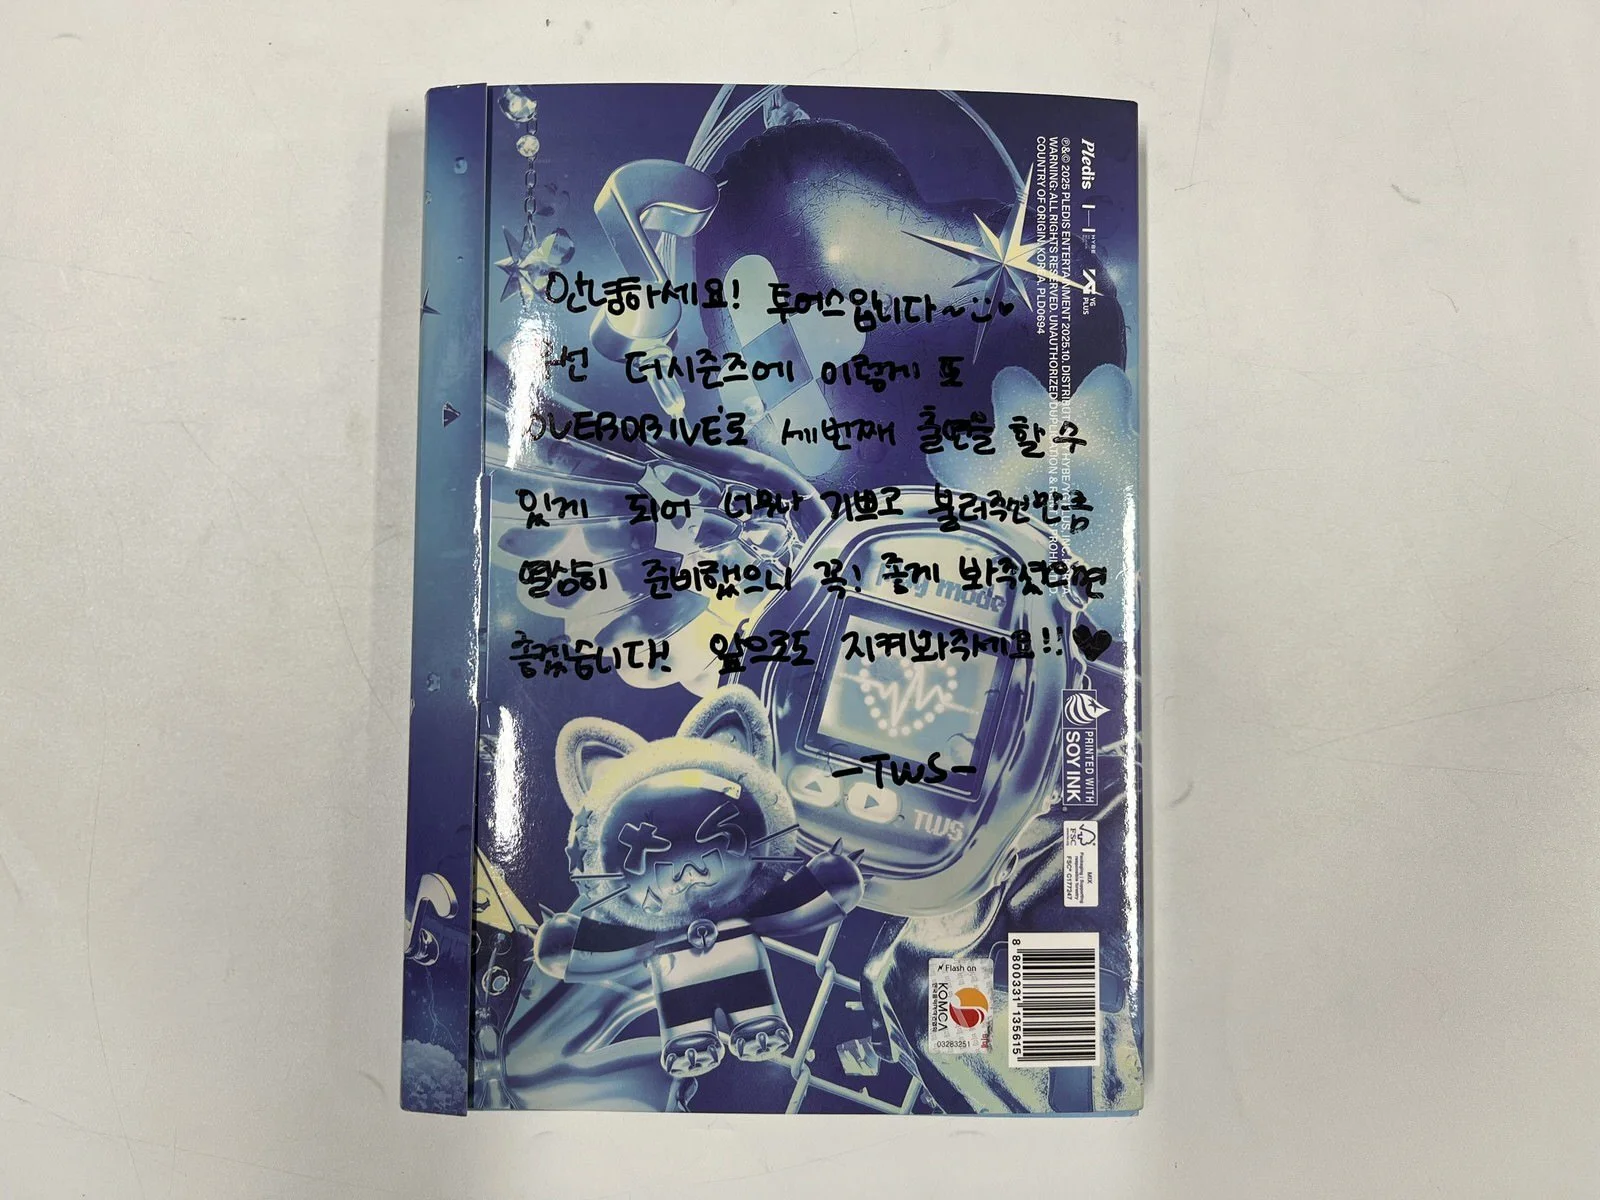 안녕하세요! 투어스입니다~
우선 더시즌즈에 이렇게 또
OVERDRIVE로 세번째 출연을 할 수
있게 되어 너무나 기쁘고 불러주신만큼
열심히 준비했으니 꼭! 좋게 봐주셨으면
좋겠습니다! 앞으로도 지켜봐주세요!! ♥
-TWS-
Pledis HYBE YG PLUS
℗&© 2025 PLEDIS ENTERTAINMENT 2025.10. DISTRIBUT
WARNING: ALL RIGHTS RESERVED. UNAUTHORIZED DUPL
COUNTRY OF ORIGIN: KOREA. PLD0694
mode
TWS
PRINTED WITH
SOY INK
FSC
MIX
FSC® C177247
Flash on
KOMCA
03283251
8 800331 135615